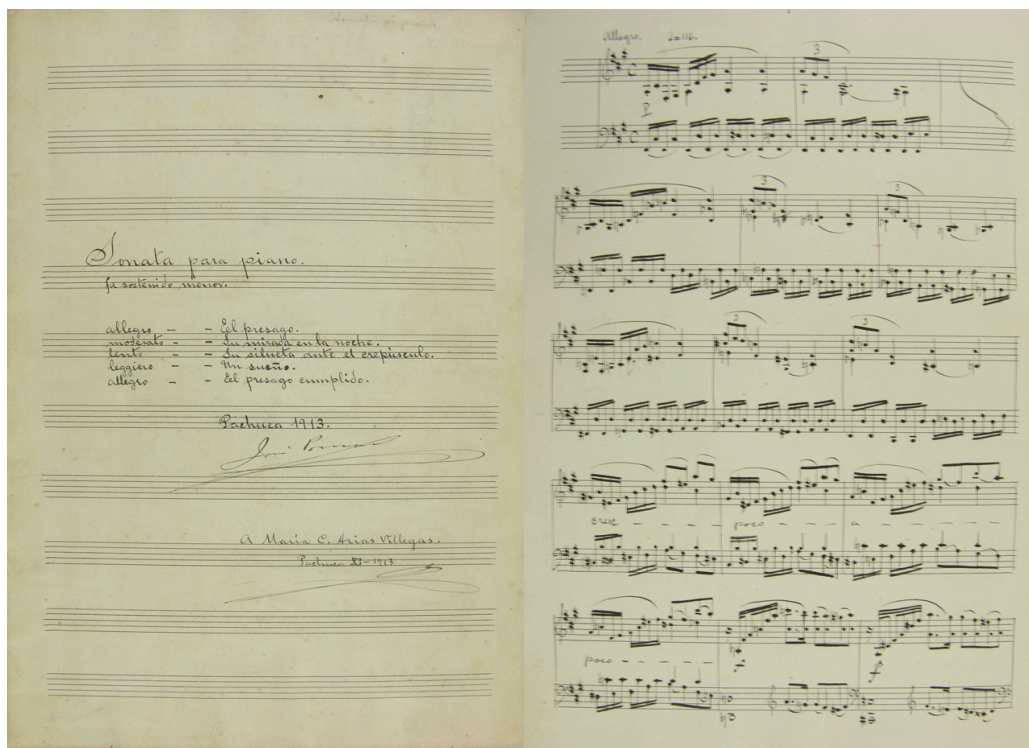 Sonata para piano.
fa sostenido menor.
allegro - - Eel presago.
moderato - - Su mirada en la noche.
lento - - Su silueta ante el crepúsculo.
leggiero - - Un sueño.
allegro - - Eel presago cumplido.
Pachuca 1913.
A María C. Arias Villegas.
Pachuca XI-1913
Allegro. ♩=116.
3
3
3
3
3
cres - - - poco - - - a - - -
poco - - -